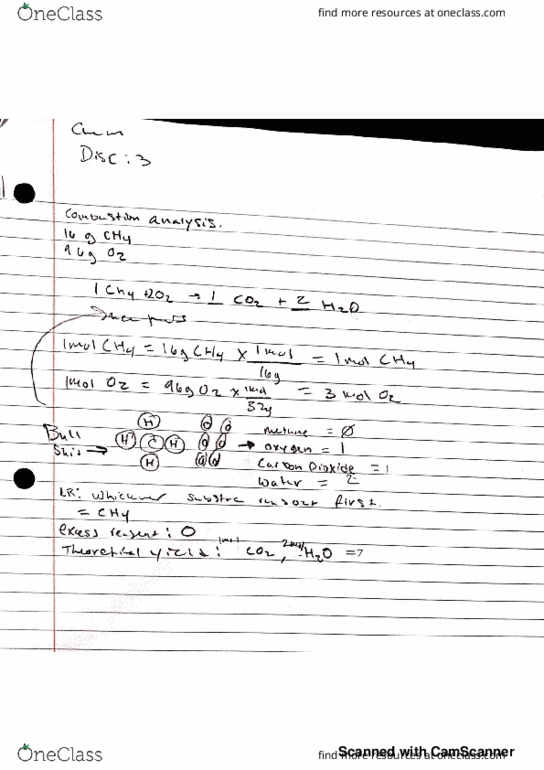 OneClass
find more resources at oneclass.com
Chem
Disc: 3
Combustion analysis.
16 g CH4
96g O2
1 CH4 + 2O2 → 1 CO2 + 2 H2O
1mol CH4 = 16g CH4 × 1mol/16g = 1mol CH4
1mol O2 = 96g O2 × 1mol/32g = 3 mol O2
Bull
Shit →
H
H C H
H
O O
O O
O O
→
methane = Ø
oxygen = 1
Carbon Dioxide = 1
Water = 2
LR: whichever runs out first.
= CH4
excess reagent: O
Theoretical yield: 1mol CO2, 2mol H2O =7
OneClass
find more resources at oneclass.com
Scanned with CamScanner